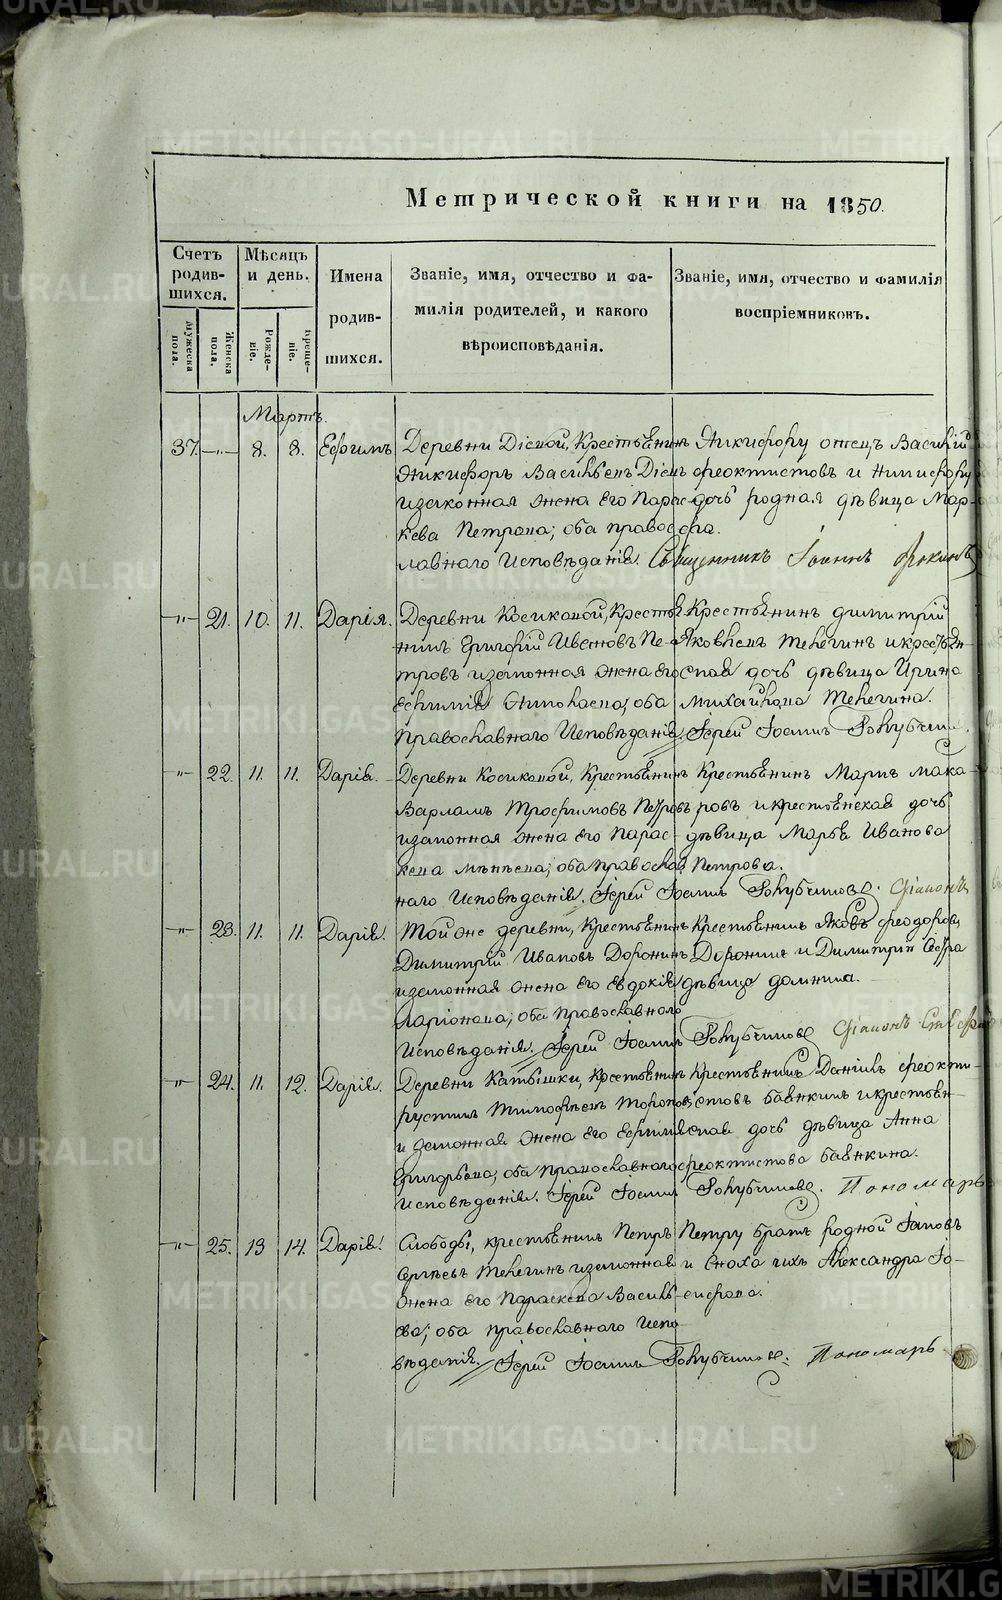 Метрической книги на 1850.
Счетъ родив- шихся.
Мѣсяцъ и день.
Имена родив- шихся.
Званіе, имя, отчество и фа- милія родителей, и какого вѣроисповѣданія.
Званіе, имя, отчество и фамилія воспріемниковъ.
Мужеска пола.
Женска пола.
Рожде- ніе.
Креще- ніе.
Мартъ.
37. -„- 8. 8. Ефимъ.
Деревни Діевой, Крестьянинъ
Никифоръ Васильевъ Діевъ
и законная жена его Парас-
кева Петрова; оба правос-
лавнаго Исповѣданія.
Никифору отецъ Василій
Феоктистовъ и Никифору
дочь родная дѣвица Мар-
фа.
Священникъ Іоаннъ
-„- 21. 10. 11. Дарія.
Деревни Косиковой, Крестья-
нинъ Григорій Ивановъ Пе-
тровъ и законная жена его
Евфимія; оба
Православнаго Исповѣданія.
Крестьянинъ Димитрій
Яковлевъ Телегинъ и крестьян-
ская дочь дѣвица Ирина
Михайлова Телегина.
Іерей Іоаннъ Голубчиковъ.
-„- 22. 11. 11. Дарія.
Деревни Косиковой, Крестьянинъ
Варламъ Трофимовъ Петровъ
и законная жена его Парас-
кева; оба православ-
наго Исповѣданія.
Крестьянинъ Мака-
ровъ и крестьянская дочь
дѣвица Марья Иванова
Петрова.
Іерей Іоаннъ Голубчиковъ. Діаконъ
-„- 23. 11. 11. Дарія.
Той же деревни, Крестьянинъ
Димитрій Ивановъ Доронинъ
и законная жена его Евдокія
Ларіонова; оба Православнаго
Исповѣданія.
Крестьянинъ Яковъ Феодоровъ
Доронинъ и Димитрія Сестра
дѣвица Домника.
Іерей Іоаннъ Голубчиковъ Діаконъ
-„- 24. 11. 12. Дарія.
Деревни Катышки, Крестьянинъ
Тимофеевъ Тороповъ
и законная жена его Евфимія
Григорьева; оба православнаго
Исповѣданія.
Крестьянинъ Даніилъ Феокти-
стовъ Бабкинъ и крестьян-
ская дочь дѣвица Анна
Феоктистова Бабкина.
Іерей Іоаннъ Голубчиковъ. Пономарь
-„- 25. 13 14. Дарія.
Слободы, крестьянинъ Петръ
Сергѣевъ Телегинъ и законная
жена его Параскева Василь-
ева; оба православнаго Испо-
вѣданія.
Петру братъ родной Іаковъ
и Сноха ихъ Александра Іо-
сифова.
Іерей Іоаннъ Голубчиковъ. Пономарь
METRIKI.GASO-URAL.RU